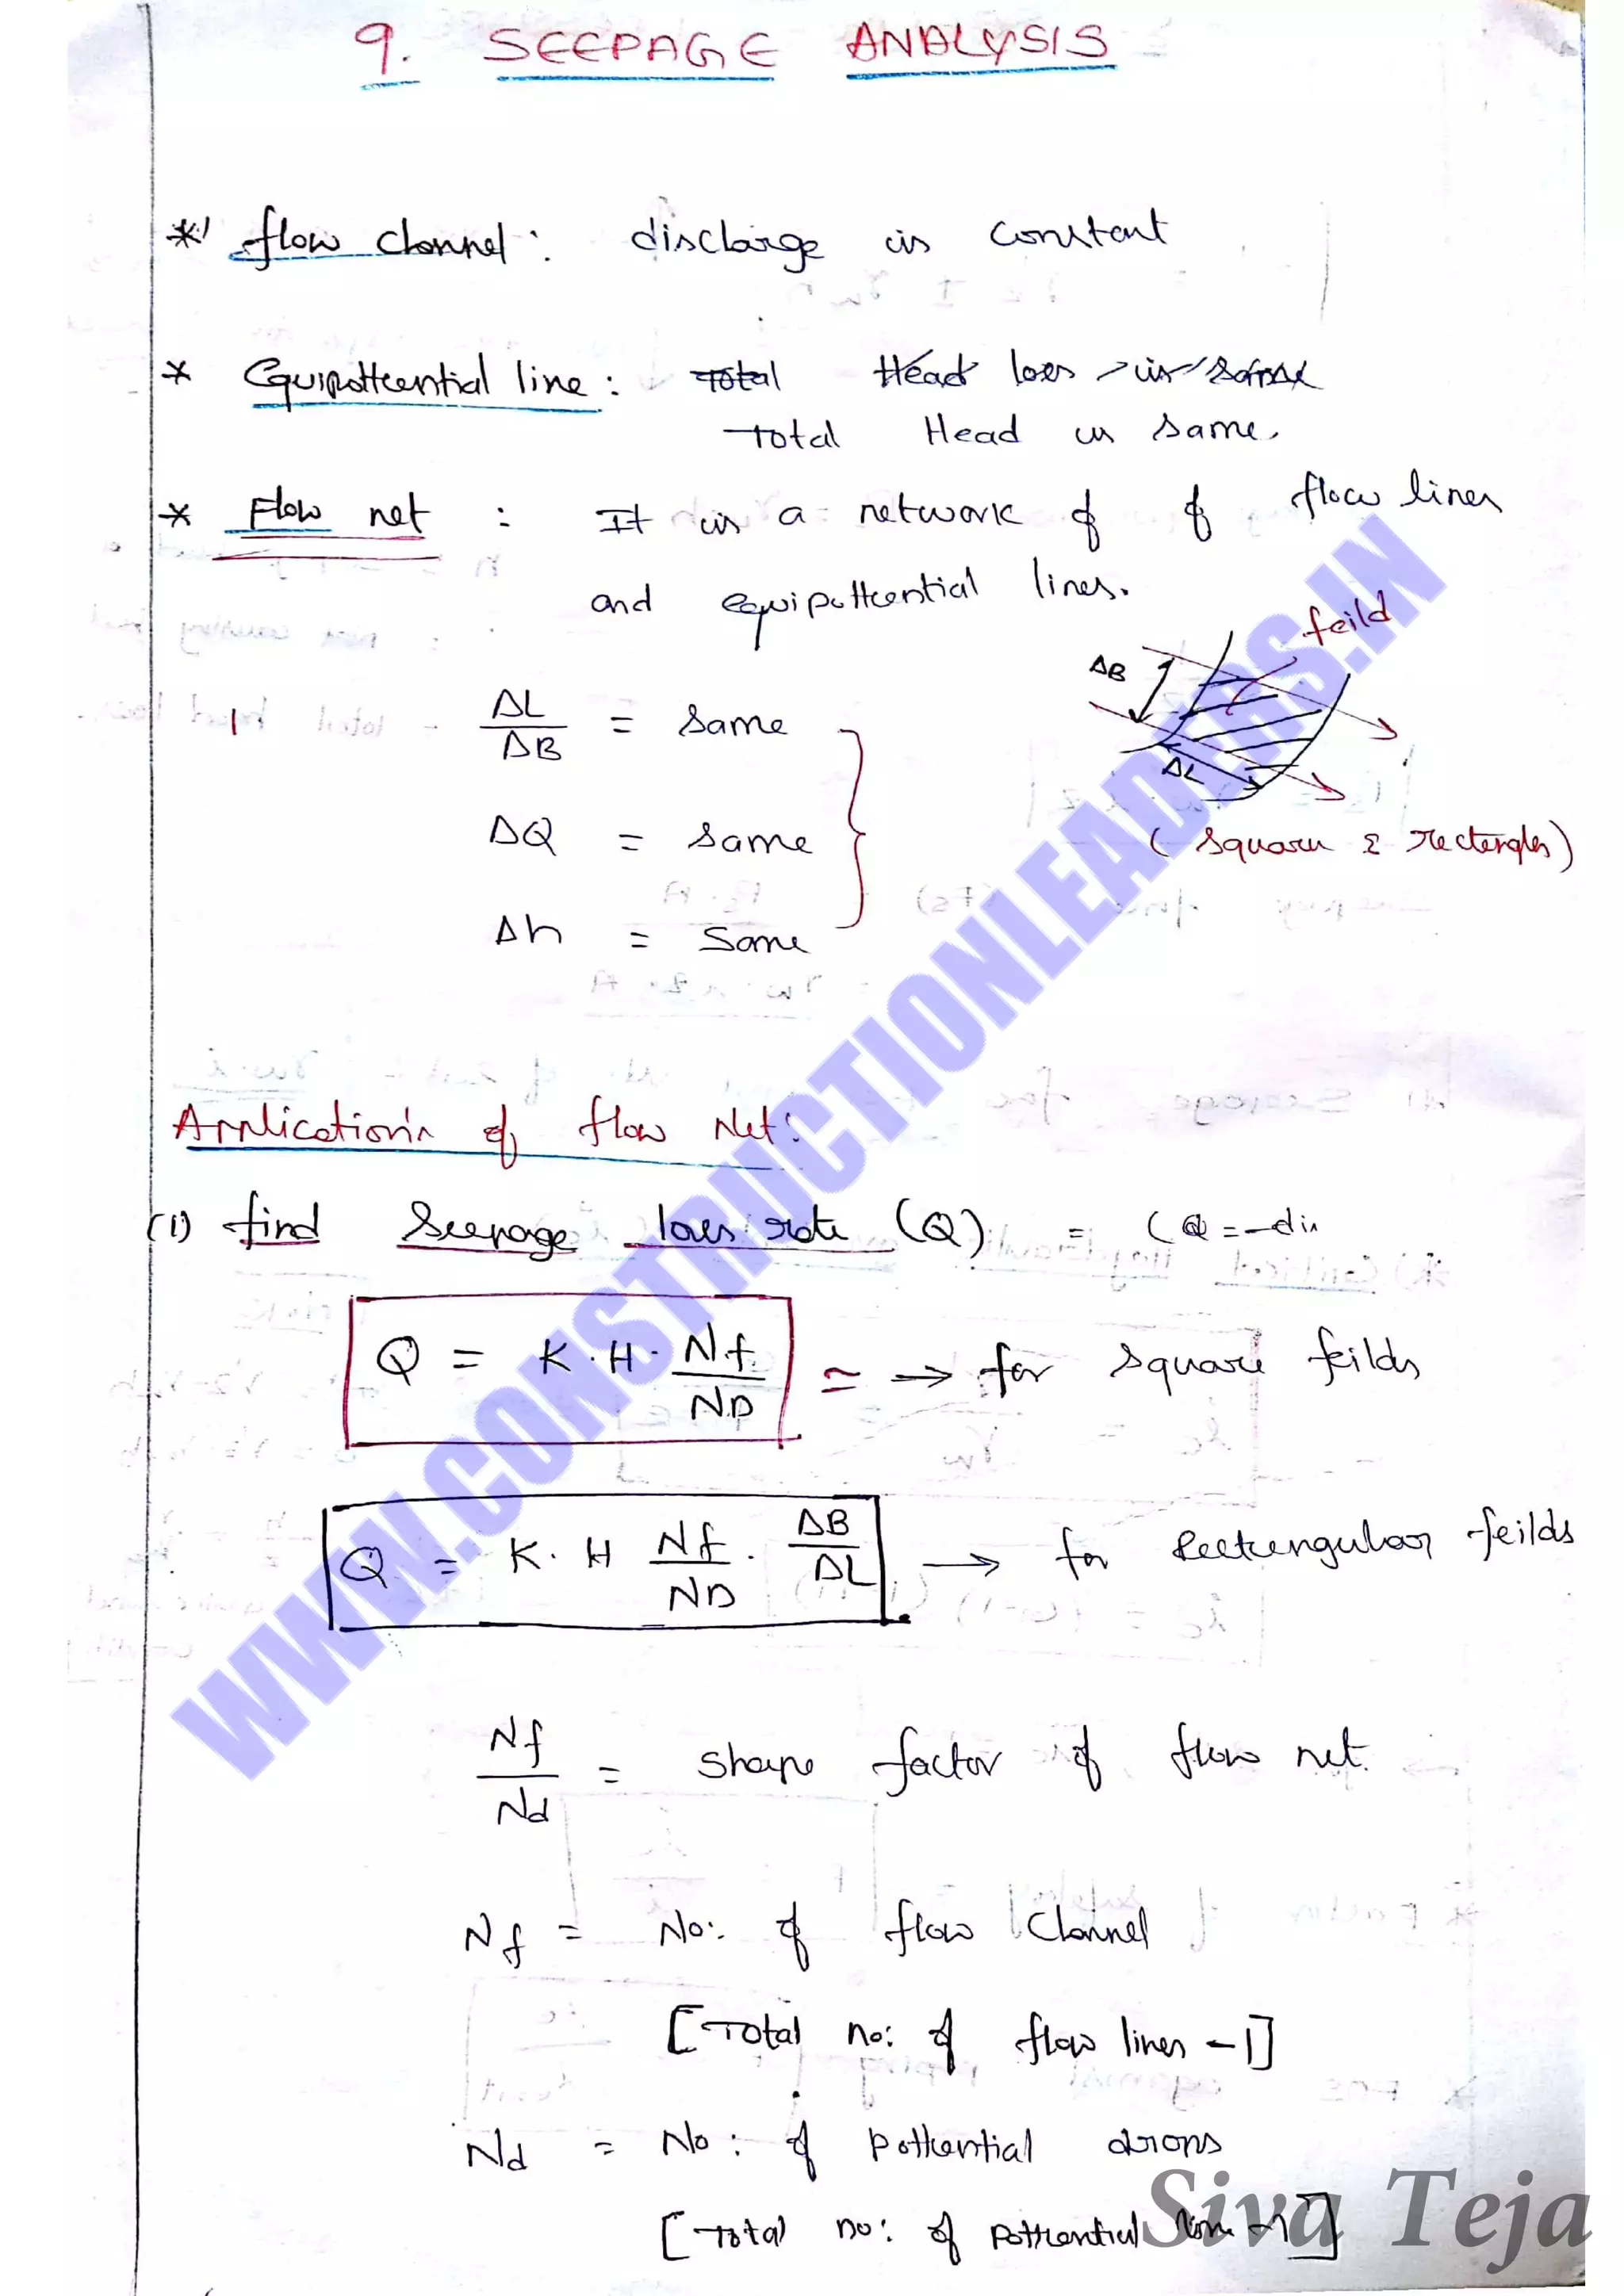 9. SEEPAGE ANALYSIS
* flow channel : discharge is constant
* Equipottential line : Total Head loss is same
Total Head is same.
* Flow net : It is a network of of flow lines
and equipottential lines.
feild
ΔB
ΔL
(square & rectangles)
ΔL/ΔB = same
ΔQ = same
Δh = same
Application's of flow Net:
(1) find Seepage loss rate (Q) = (Q = -dis
Q = K.H. Nf/ND = → for square feilds
Q = K. H Nf/ND . ΔB/ΔL → for Rectungular feilds
Nf/Nd = shape factor of flow net.
Nf = No: of flow Channel
[Total no: of flow lines -1]
Nd = No: of pottential drops
[Total no: of pottential line -1]
WWW.CONSTRUCTIONLEADERS.IN
Siva Teja